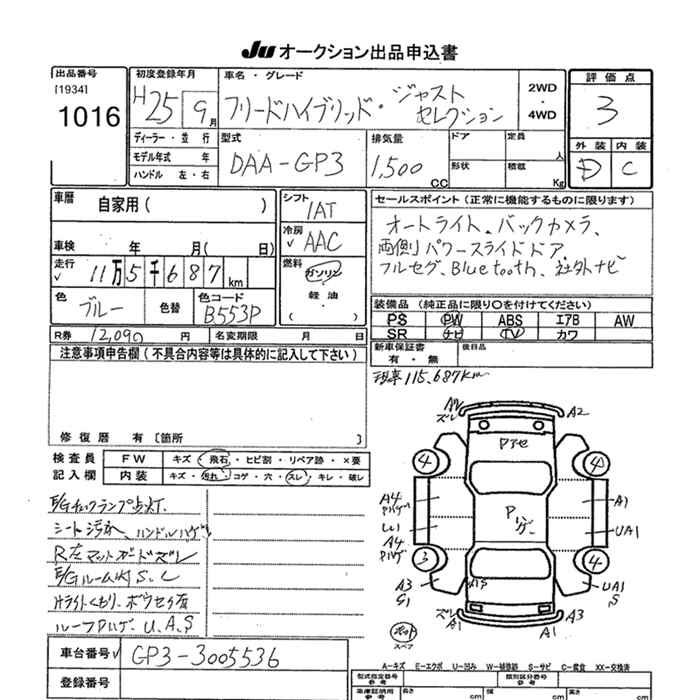 JU オークション出品申込書
出品番号 初度登録年月 車名・グレード 2WD・4WD 評価点
[1934] 1016 H25 9月 フリードハイブリッド・ジャストセレクション 3
外装 内装
D C
ディーラー・並行
モデル年式 年
ハンドル 左・右
型式 DAA-GP3 排気量 1,500 CC ドア 定員 人
形状 積載 Kg
車暦 自家用( ) シフト IAT
車検 年 月( 日) 冷房 AAC
走行 11万5千687km 燃料 ガソリン 軽油
色 ブルー 色替 色コード B553P
R券 12,090円 名変期限 月 日
セールスポイント(正常に機能するものに限ります)
オートライト、バックカメラ、
両側パワースライドドア
フルセグ、Bluetooth、社外ナビ
装備品(純正品に限り〇を付けてください)
PS PW ABS エアB AW
SR ナビ TV カワ
新車保証書 有・無 後日品
注意事項申告欄(不具合内容等は具体的に記入して下さい)
現車115,687km
修復歴 有〔箇所 〕
検査員 FW キズ・飛石・ヒビ割・リペア跡・×要
記入欄 内装 キズ・汚れ・コゲ・穴・スレ・キレ・破レ
E/Gチェックランプ点灯
シート汚れ、ハンドルハゲ
R左マットガードズレ
E/Gルーム内S、C
片ライトくもり、ボウセイ有
ルーフPハゲ、U、A、S
ズレ A2
Pアセ
4 4
A4 Pハゲ A1
Pハゲ
UA1
A4 Pハゲ
3 4
A3 S1 AS UA1 S
ズレ A1 A3
A1
スペア
車台番号 GP3-3005536
登録番号
A-キズ E-エクボ U-凹み W-補修跡 S-サビ C-腐食 XX-交換済
型式指定番号 参考 類別区分番号 参考
冷蔵証明用 参考 長さ cm 幅 cm 高さ cm